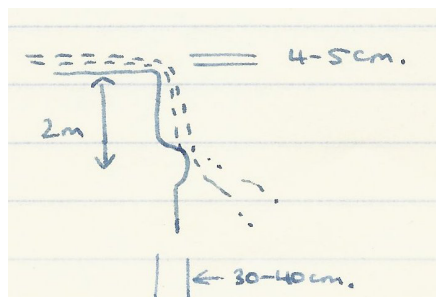 4-5cm.
2m
30-40cm.